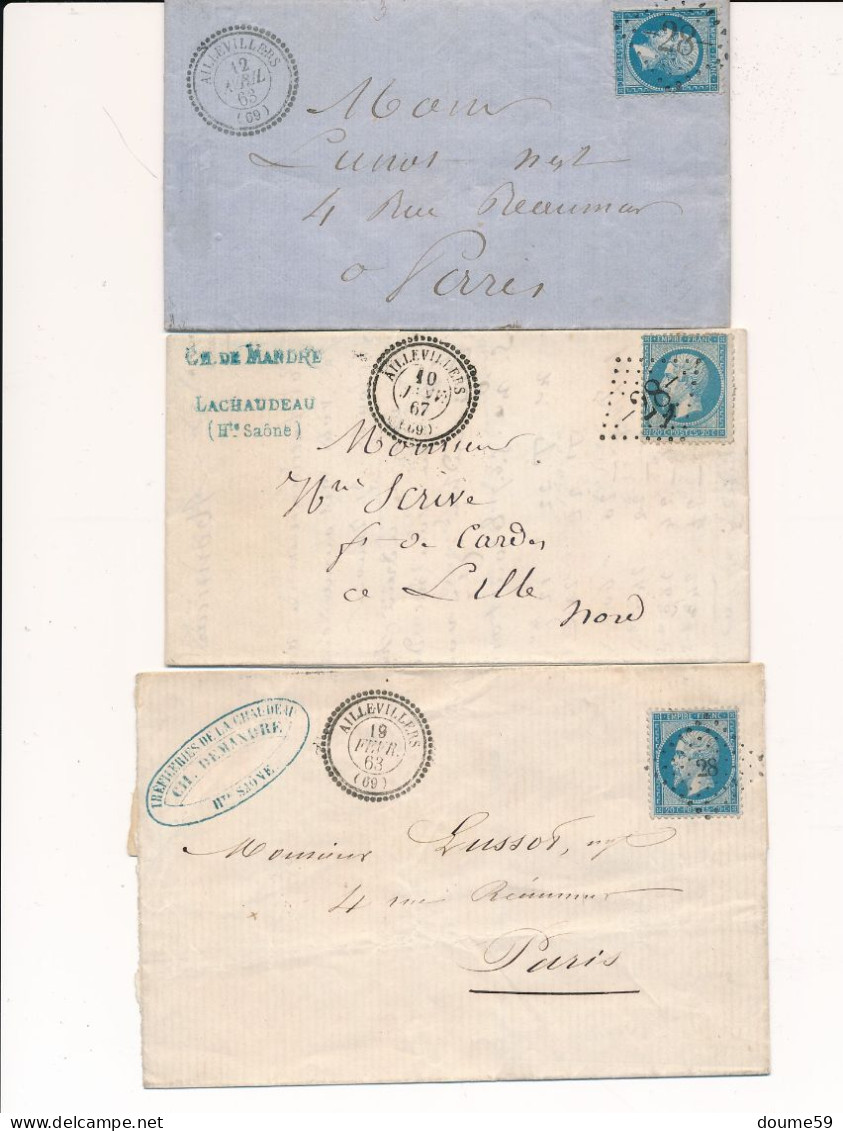 AILLEVILLERS
12
AVRIL
63
(69)
28
4 Rue Reaumur
a Paris
CH. DE MANDRE
LACHAUDEAU
(Hte Saône)
AILLEVILLERS
10
67
(69)
EMPIRE FRANC
20 C POSTES 20 C
Monsieur
Scrive
ft de Cardes
a Lille
Nord
TREFILERIES DE LA CHAUDEAU
CH. DEMANDRE
Hte SAÔNE
AILLEVILLERS
19
FEVR.
63
(69)
EMPIRE FRANC
28
20 C POSTES 20 C
Monsieur Lussot, negt
4 rue Réaumur
Paris
doume59